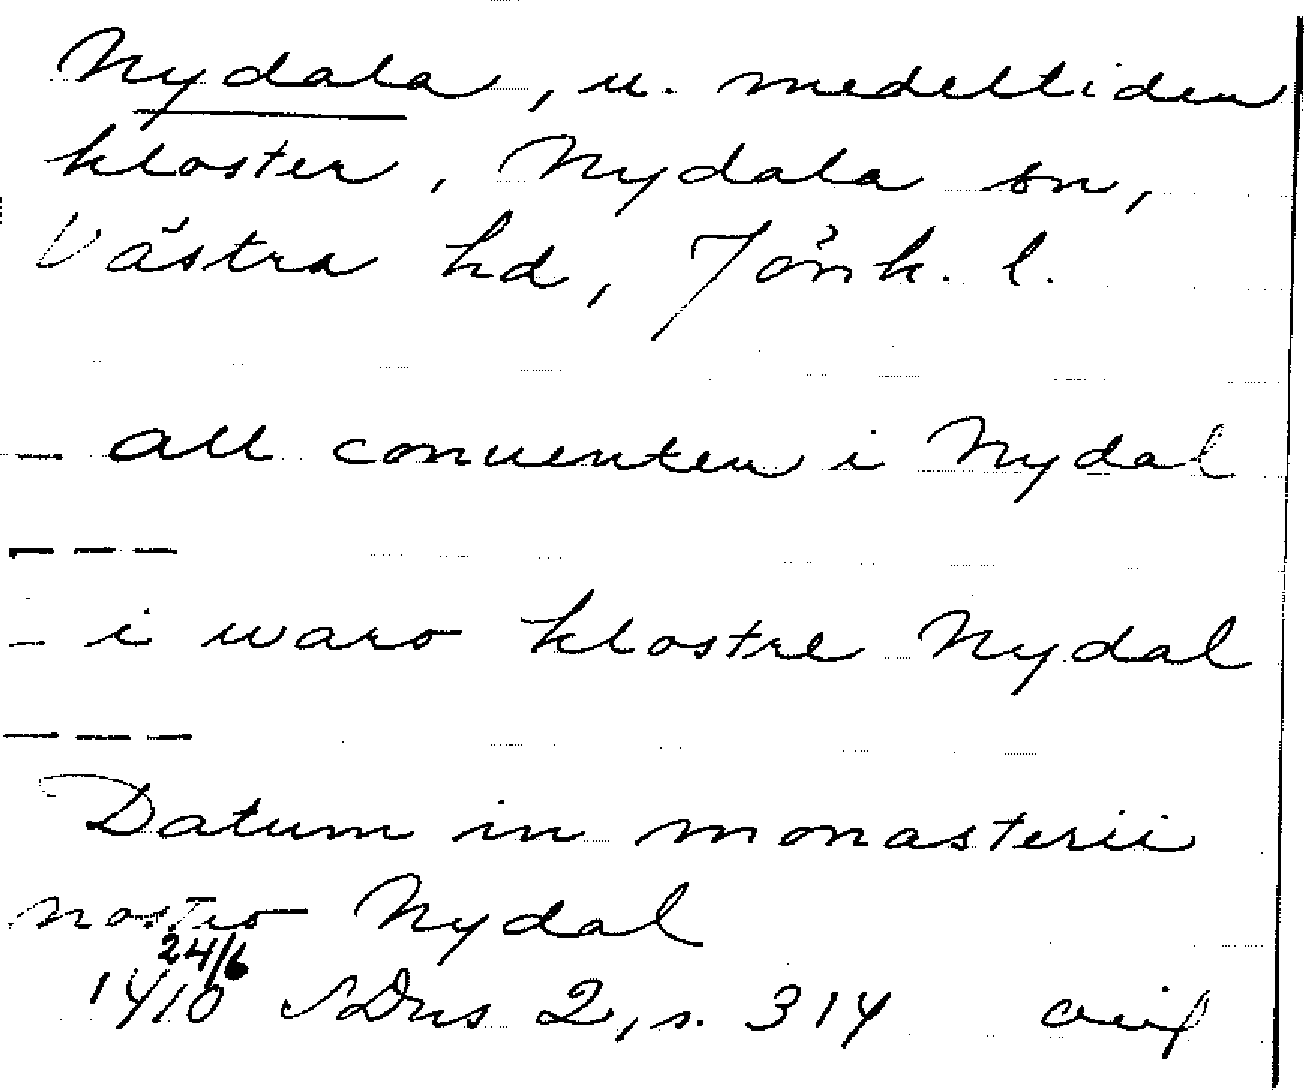 Nydala, u. medeltiden
kloster, Nydala sn,
Västra hd, Jönk. l.
– all conuenten i Nydal
– – –
– i waro klostre Nydal
– – –
Datum in monasterii
nostro Nydal
24/6
1410 SDns 2, s. 314